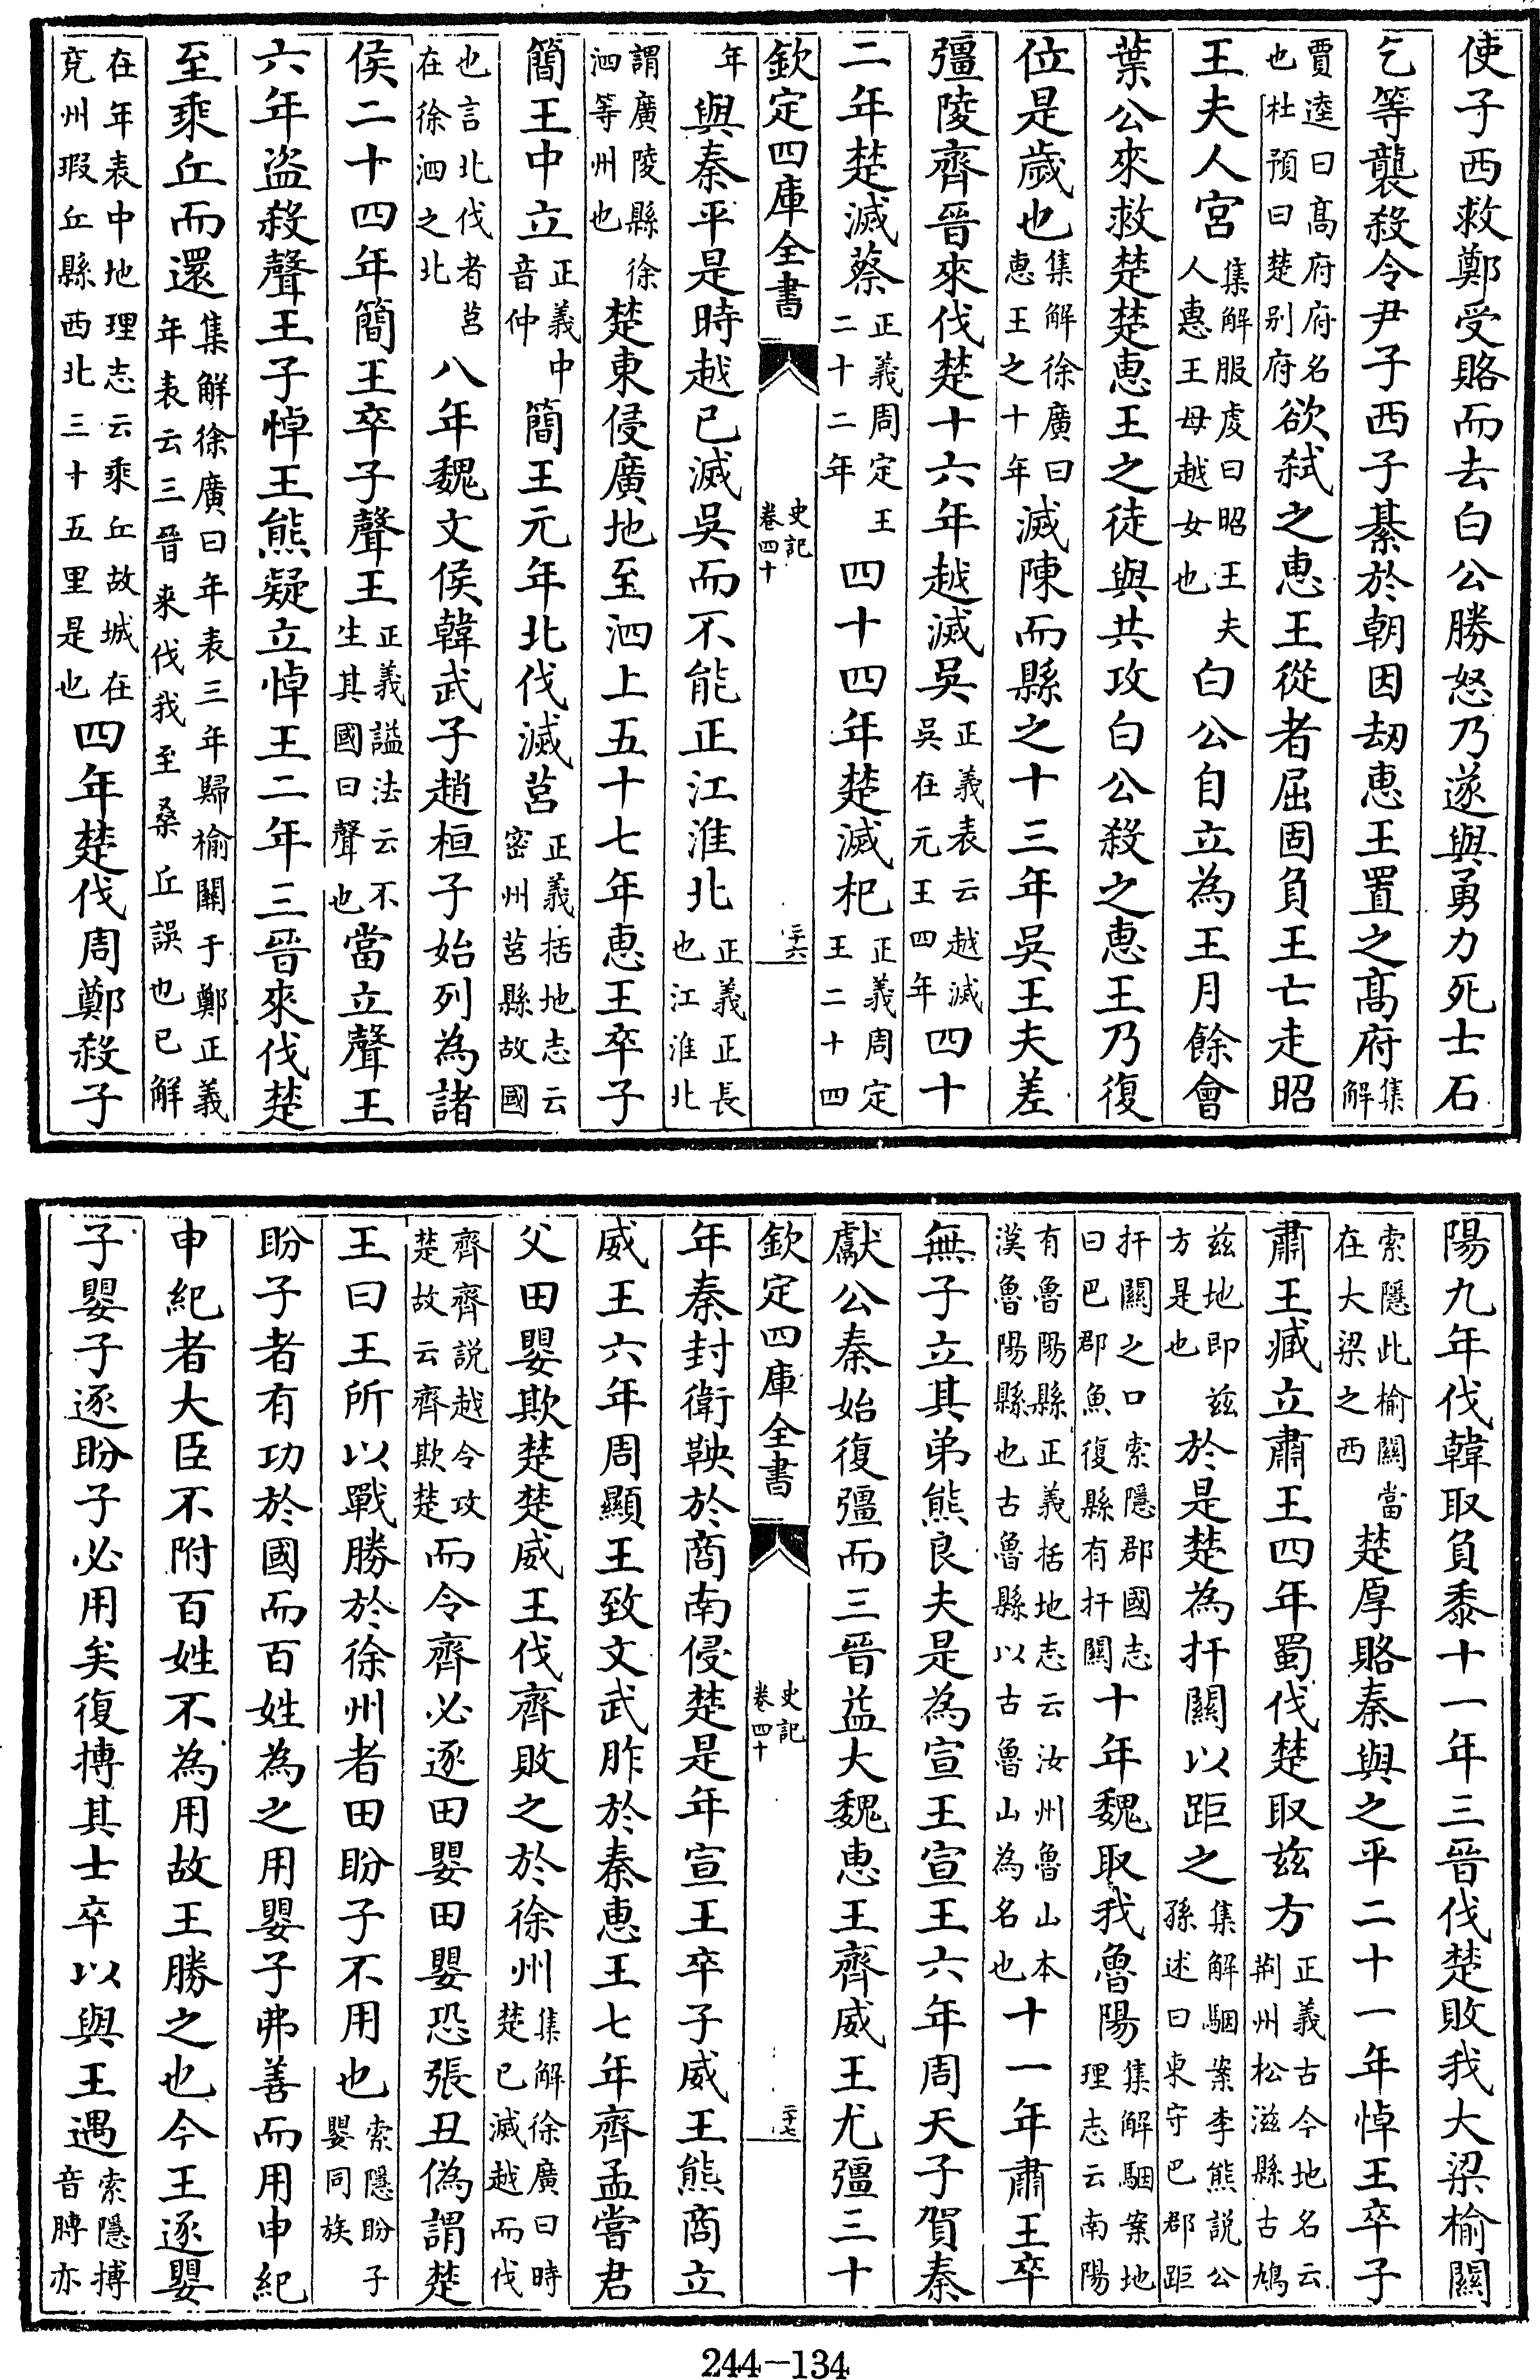 使子西救鄭受賂而去白公勝怒乃遂與勇力死士石
乞等襲殺令尹子西子綦於朝因劫惠王置之髙府集解
賈逵曰髙府府名也杜預曰楚别府欲弑之惠王從者屈固負王亡走昭
王夫人宮集解服虔曰昭王夫人惠王母越女也白公自立為王月餘㑹
葉公來救楚楚惠王之徒與共攻白公殺之惠王乃復
位是歲也集解徐廣曰惠王之十年滅陳而縣之十三年吳王夫差
彊陵齊晉來伐楚十六年越滅吳正義表云越滅吳在元王四年四十
二年楚滅蔡正義周定王二十二年四十四年楚滅杞正義周定王二十四
欽定四庫全書
史記卷四十
三十六
年與秦平是時越已滅吳而不能正江淮北正義正長也江淮北
謂廣陵縣徐泗等州也楚東侵廣地至泗上五十七年惠王卒子
簡王中立正義中音仲簡王元年北伐滅莒正義括地志云密州莒縣故國
也言北伐者莒在徐泗之北八年魏文侯韓武子趙桓子始列為諸
侯二十四年簡王卒子聲王正義謚法云不生其國曰聲也當立聲王
六年盜殺聲王子悼王熊疑立悼王二年三晉來伐楚
至乘丘而還集解徐廣曰年表三年歸榆關于鄭正義年表云三晉来伐我至桑丘誤也已解
在年表中地理志云乘丘故城在兖州瑕丘縣西北三十五里是也四年楚伐周鄭殺子
陽九年伐韓取負黍十一年三晉伐楚敗我大梁榆關
索隱此榆關當在大梁之西楚厚賂秦與之平二十一年悼王卒子
肅王臧立肅王四年蜀伐楚取兹方正義古今地名云荆州松滋縣古鳩
兹地即兹方是也於是楚為扞關以距之集解駰案李熊説公孫述曰東守巴郡距
扞關之口索隱郡國志曰巴郡魚復縣有扞關十年魏取我魯陽集解駰案地理志云南陽
有魯陽縣正義括地志云汝州魯山本漢魯陽縣也古魯縣以古魯山為名也十一年肅王卒
無子立其弟熊良夫是為宣王宣王六年周天子賀秦
獻公秦始復彊而三晉益大魏惠王齊威王尤彊三十
欽定四庫全書
史記卷四十
三十七
年秦封衛鞅於商南侵楚是年宣王卒子威王熊商立
威王六年周顯王致文武胙於秦惠王七年齊孟嘗君
父田嬰欺楚楚威王伐齊敗之於徐州集解徐廣曰時楚已滅越而伐
齊齊説越令攻楚故云齊欺楚而令齊必逐田嬰田嬰恐張丑偽謂楚
王曰王所以戰勝於徐州者田盼子不用也索隱盼子嬰同族
盼子者有功於國而百姓為之用嬰子弗善而用申紀
申紀者大臣不附百姓不為用故王勝之也今王逐嬰
子嬰子逐盼子必用矣復搏其士卒以與王遇索隱搏音膊亦
244-134